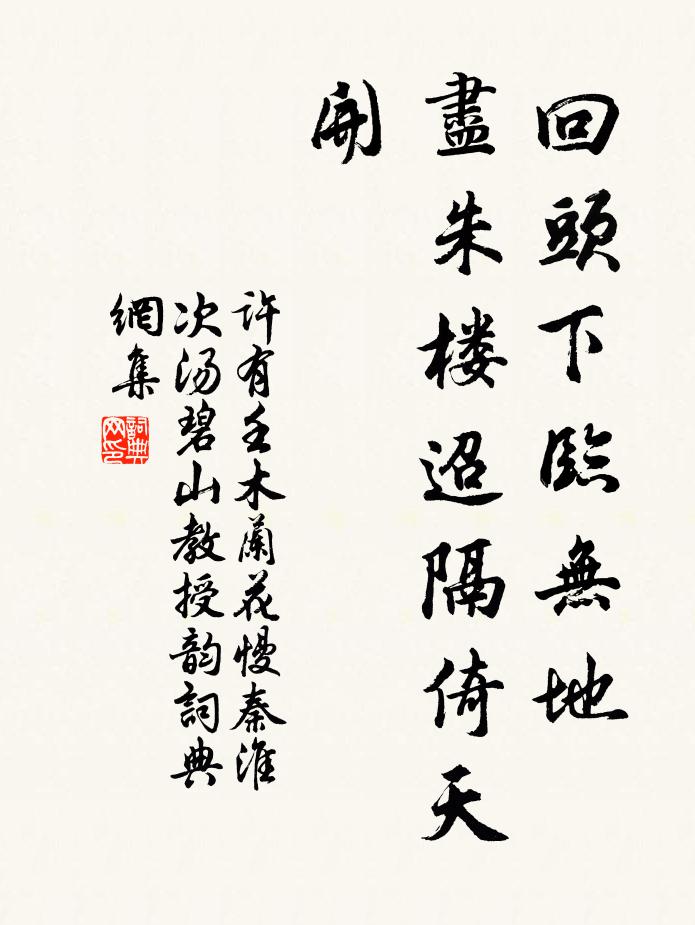 回頭下臨無地
盡朱楼迢隔倚天
開
許有壬木蘭花慢秦淮
次汤碧山教授韵詞典
網集
詞典
网印